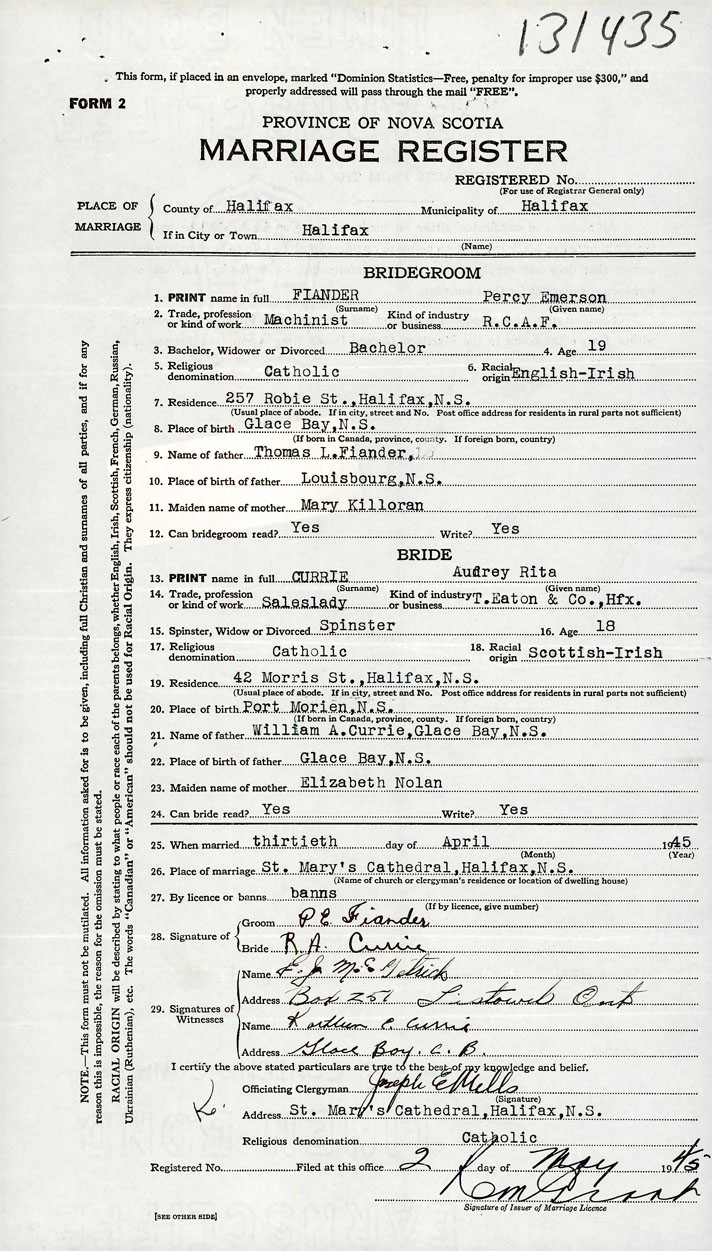 131435
This form, if placed in an envelope, marked "Dominion Statistics—Free, penalty for improper use $300," and
properly addressed will pass through the mail "FREE".
FORM 2
PROVINCE OF NOVA SCOTIA
MARRIAGE REGISTER
REGISTERED No.
(For use of Registrar General only)
PLACE OF MARRIAGE
County of Halifax Municipality of Halifax
If in City or Town Halifax
(Name)
BRIDEGROOM
1. PRINT name in full FIANDER Percy Emerson
(Surname) (Given name)
2. Trade, profession or kind of work Machinist Kind of industry or business R.C.A.F.
3. Bachelor, Widower or Divorced Bachelor 4. Age 19
5. Religious denomination Catholic 6. Racial origin English-Irish
7. Residence 257 Robie St.,Halifax,N.S.
(Usual place of abode. If in city, street and No. Post office address for residents in rural parts not sufficient)
8. Place of birth Glace Bay,N.S.
(If born in Canada, province, county. If foreign born, country)
9. Name of father Thomas L.Fiander,
10. Place of birth of father Louisbourg,N.S.
11. Maiden name of mother Mary Killoran
12. Can bridegroom read? Yes Write? Yes
BRIDE
13. PRINT name in full CURRIE Audrey Rita
(Surname) (Given name)
14. Trade, profession or kind of work Saleslady Kind of industry or business T.Eaton & Co.,Hfx.
15. Spinster, Widow or Divorced Spinster 16. Age 18
17. Religious denomination Catholic 18. Racial origin Scottish-Irish
19. Residence 42 Morris St.,Halifax,N.S.
(Usual place of abode. If in city, street and No. Post office address for residents in rural parts not sufficient)
20. Place of birth Port Morien,N.S.
(If born in Canada, province, county. If foreign born, country)
21. Name of father William A.Currie,Glace Bay,N.S.
22. Place of birth of father Glace Bay,N.S.
23. Maiden name of mother Elizabeth Nolan
24. Can bride read? Yes Write? Yes
25. When married thirtieth day of April 1945
(Month) (Year)
26. Place of marriage St. Mary's Cathedral,Halifax,N.S.
(Name of church or clergyman's residence or location of dwelling house)
27. By licence or banns banns
(If by licence, give number)
28. Signature of
Groom P E Fiander
Bride R. A. Currie
29. Signatures of Witnesses
Name E. J. McGetrick
Address Box 257 Listowel Ont
Name Kathleen C. Currie
Address Glace Bay. C. B.
I certify the above stated particulars are true to the best of my knowledge and belief.
Officiating Clergyman Joseph E Mills
(Signature)
Address St. Mary's Cathedral,Halifax,N.S.
Religious denomination Catholic
Registered No. Filed at this office 2 day of May 1945
Signature of Issuer of Marriage Licence
[SEE OTHER SIDE]
NOTE.—This form must not be mutilated. All information asked for is to be given, including full Christian and surnames of all parties, and if for any
reason this is impossible, the reason for the omission must be stated.
RACIAL ORIGIN will be described by stating to what people or race each of the parents belongs, whether English, Irish, Scottish, French, German, Russian,
Ukrainian (Ruthenian), etc. The words "Canadian" or "American" should not be used for Racial Origin. They express citizenship (nationality).